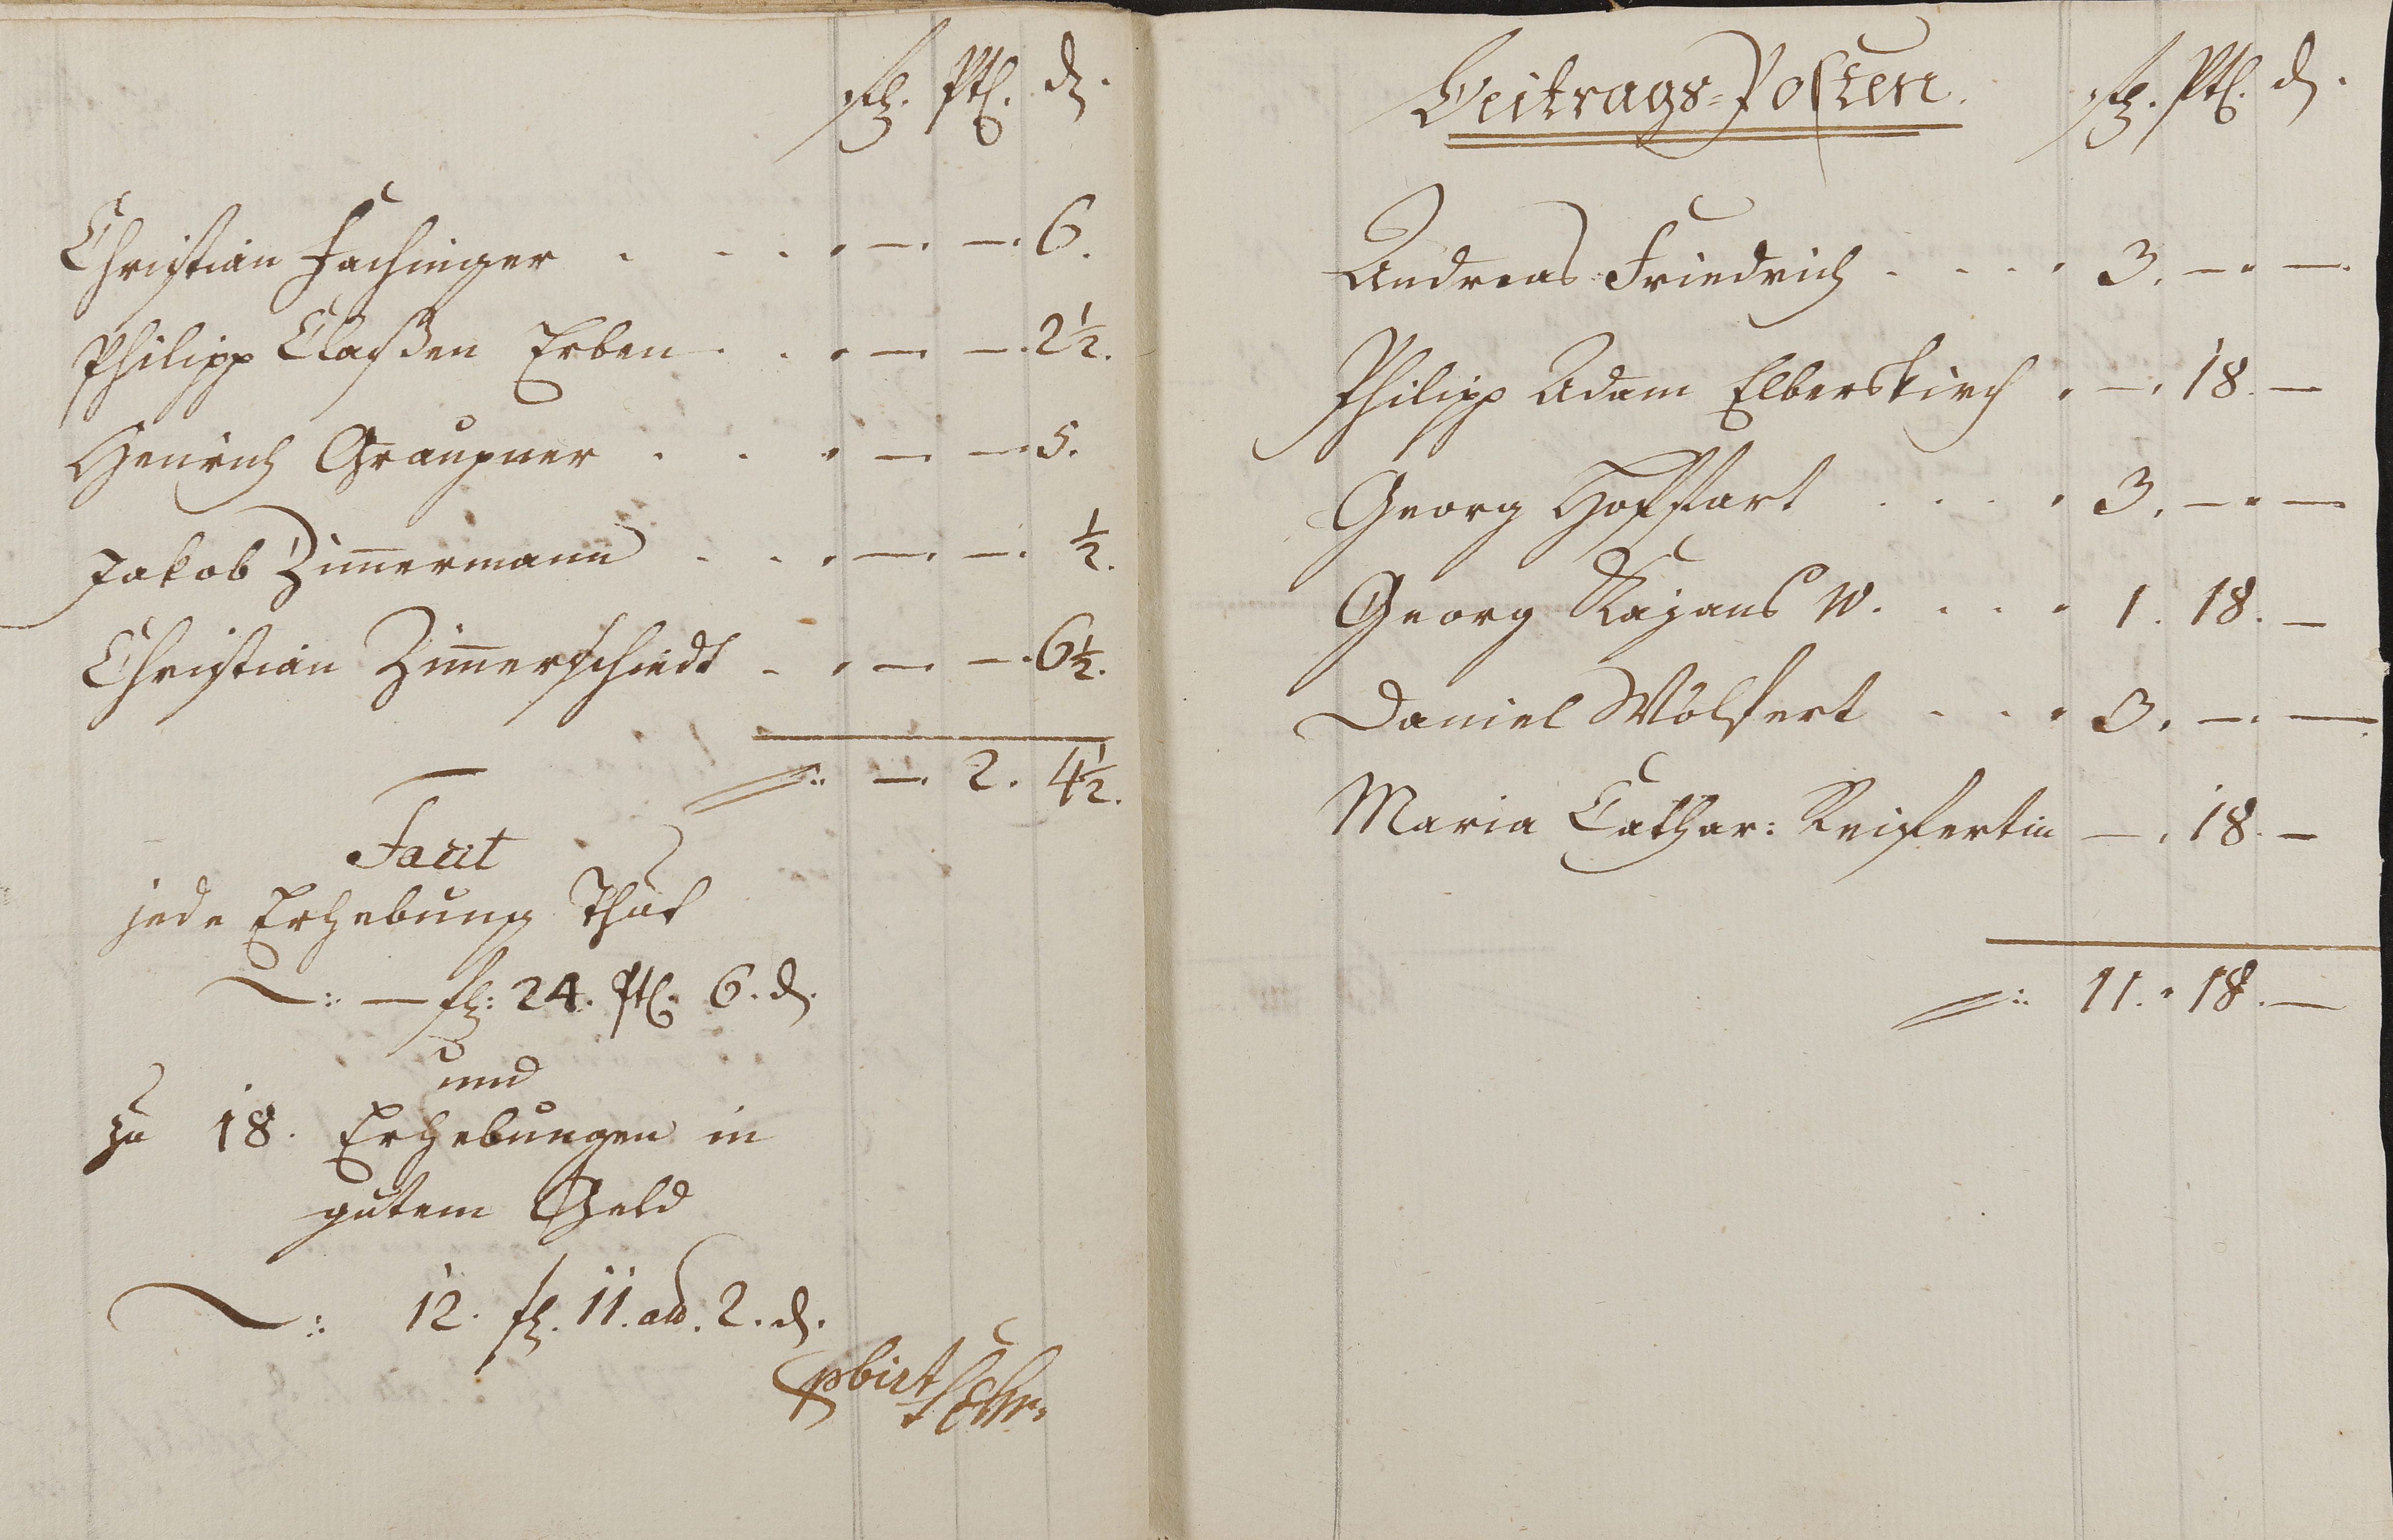 fl. Ptl. d.
Christian Fachinger . . . . — . — . 6.
Philipp Claßen Erben . . . — . — . 2½.
Henrich Graupner . . . — — 5.
Jakob Zimmermann . . . — . — . ½.
Christian Zimmerschiedt . . — . — . 6½.
— . 2 . 4½.
Facit
jede Erhebung thut
— fl: 24. Ptl. 6. d.
und
zu 18. Erhebungen in
gutem Geld
12. fl. 11. alb. 2. d.
Beitrags-Posten. fl. Ptl. d.
Andreas Friedrich . . . . 3. — . —
Philipp Adam Elberskirch . — . 18. —
Georg Hoffart . . . 3. — . —
Georg Kajans W. . . . 1. 18. —
Daniel Wolfert . . . 3. — . —
Maria Cathar: Reifertin — . 18. —
11. . 18. —